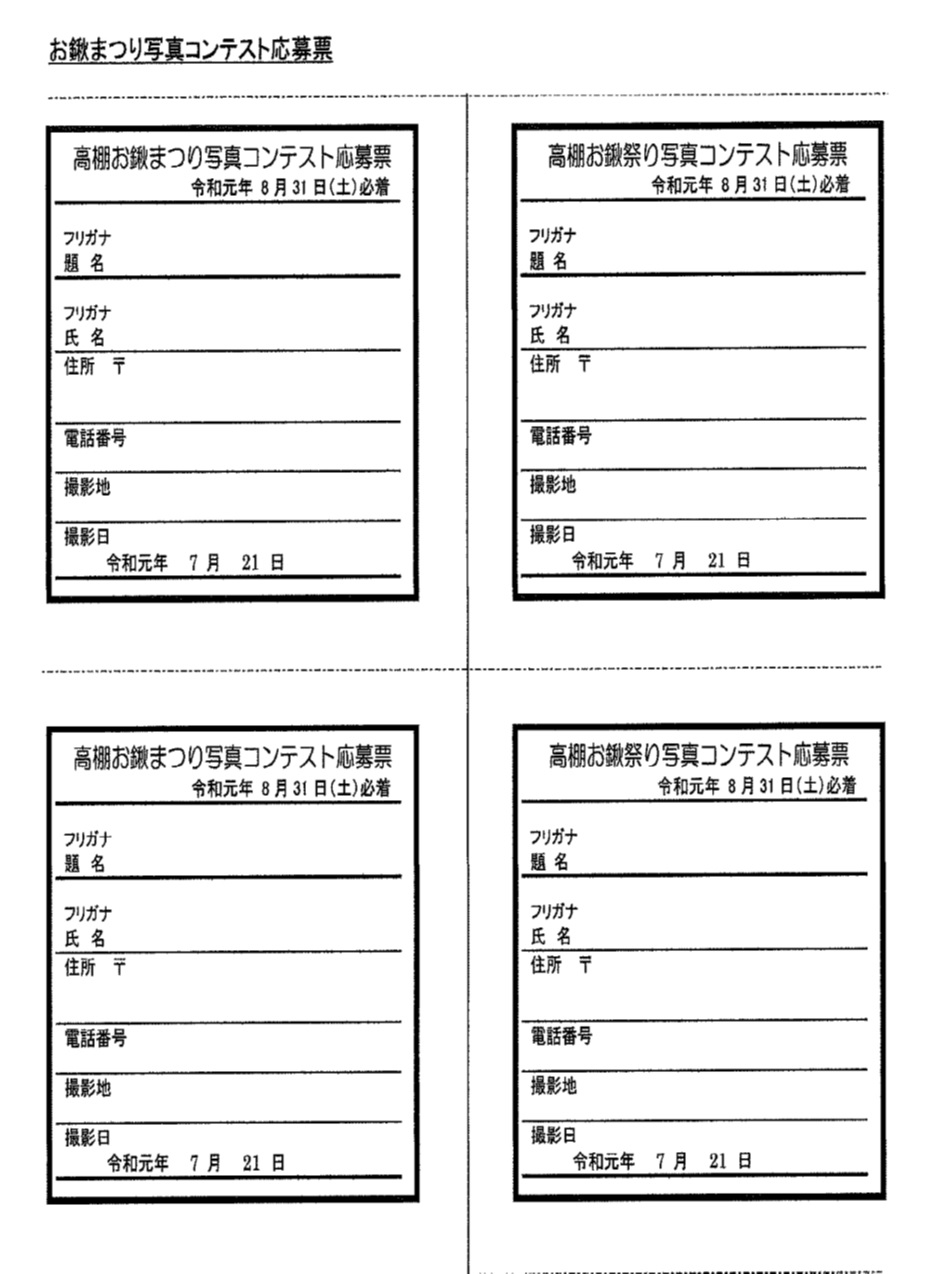 お鍬まつり写真コンテスト応募票
高棚お鍬まつり写真コンテスト応募票
令和元年 8月31日(土)必着
フリガナ
題 名
フリガナ
氏 名
住所 〒
電話番号
撮影地
撮影日
令和元年 7月 21日
高棚お鍬祭り写真コンテスト応募票
令和元年 8月31日(土)必着
フリガナ
題 名
フリガナ
氏 名
住所 〒
電話番号
撮影地
撮影日
令和元年 7月 21日
高棚お鍬まつり写真コンテスト応募票
令和元年 8月31日(土)必着
フリガナ
題 名
フリガナ
氏 名
住所 〒
電話番号
撮影地
撮影日
令和元年 7月 21日
高棚お鍬祭り写真コンテスト応募票
令和元年 8月31日(土)必着
フリガナ
題 名
フリガナ
氏 名
住所 〒
電話番号
撮影地
撮影日
令和元年 7月 21日